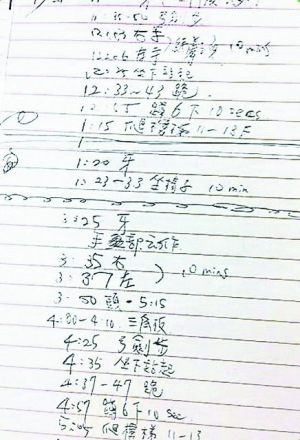 11:35-50 弓劍步
12:03 右手
12:06 左手 10 mins
12:25 坐下站起
12:33-43 跪
12:55 蹲6下10 secs
1:15 爬樓梯 11-13F
1:20 牙
1:23-33 坐椅子 10 min
3:25 牙
手 部 动作
3:35 右
3:37 左 10 mins
3:50 頭-5:15
4:00-4:10 三角板
4:25 弓劍步
4:35 坐下站起
4:37-47 跪
4:57 蹲6下10 sec
5:05 爬樓梯 11-13